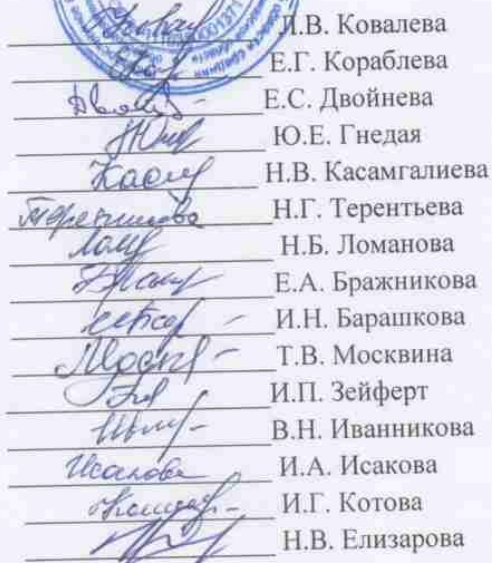 Л.В. Ковалева
Е.Г. Кораблева
Е.С. Двойнева
Ю.Е. Гнедая
Н.В. Касамгалиева
Терентьева Н.Г. Терентьева
Н.Б. Ломанова
Е.А. Бражникова
И.Н. Барашкова
Т.В. Москвина
И.П. Зейферт
В.Н. Иванникова
Исакова И.А. Исакова
И.Г. Котова
Н.В. Елизарова